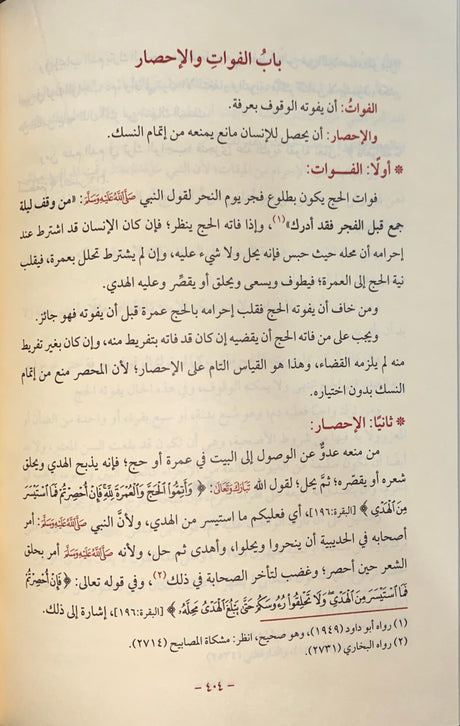 بابُ الفواتِ والإحصار
الفواتُ: أن يفوته الوقوف بعرفة.
والإحصار: أن يحصل للإنسان مانع يمنعه من إتمام النسك.
* أولًا: الفــوات:
فوات الحج يكون بطلوع فجر يوم النحر لقول النبي ﷺ: «من وقف ليلة
جمع قبل الفجر فقد أدرك»(١)، وإذا فاته الحج ينظر؛ فإن كان الإنسان قد اشترط عند
إحرامه أن محله حيث حبس فإنه يحل ولا شيء عليه، وإن لم يشترط تحلل بعمرة، فيقلب
نية الحج إلى العمرة؛ فيطوف ويسعى ويحلق أو يقصِّر وعليه الهدي.
ومن خاف أن يفوته الحج فقلب إحرامه بالحج عمرة قبل أن يفوته فهو جائز.
ويجب على من فاته الحج أن يقضيه إن كان قد فاته بتفريط منه، وإن كان بغير تفريط
منه لم يلزمه القضاء، وهذا هو القياس التام على الإحصار؛ لأن المحصر منع من إتمام
النسك بدون اختياره.
* ثانيًا: الإحصار:
من منعه عدوٌّ عن الوصول إلى البيت في عمرة أو حج؛ فإنه يذبح الهدي ويحلق
شعره أو يقصّره؛ ثمَّ يحل؛ لقول الله تَبَارَكَ وَتَعَالَى: ﴿ وَأَتِمُّوا۟ ٱلْحَجَّ وَٱلْعُمْرَةَ لِلَّهِ فَإِنْ أُحْصِرْتُمْ فَمَا ٱسْتَيْسَرَ
مِنَ ٱلْهَدْىِ ﴾ [البقرة:١٩٦]، أي فعليكم ما استيسر من الهدي، ولأنَّ النبي ﷺ: أمر
أصحابه في الحديبية أن ينحروا ويحلوا، وأهدى ثم حل، ولأنه ﷺ أمر بحلق
الشعر حين أحصر؛ وغضب لتأخر الصحابة في ذلك(٢)، وفي قوله تعالى: ﴿ فَإِنْ أُحْصِرْتُمْ
فَمَا ٱسْتَيْسَرَ مِنَ ٱلْهَدْىِ وَلَا تَحْلِقُوا۟ رُءُوسَكُمْ حَتَّىٰ يَبْلُغَ ٱلْهَدْىُ مَحِلَّهُۥ ﴾ [البقرة:١٩٦]، إشارة إلى ذلك.
(١) رواه أبو داود (١٩٤٩)، وهو صحيح، انظر: مشكاة المصابيح (٢٧١٤).
(٢) رواه البخاري (٢٧٣١).
- ٤٠٤ -